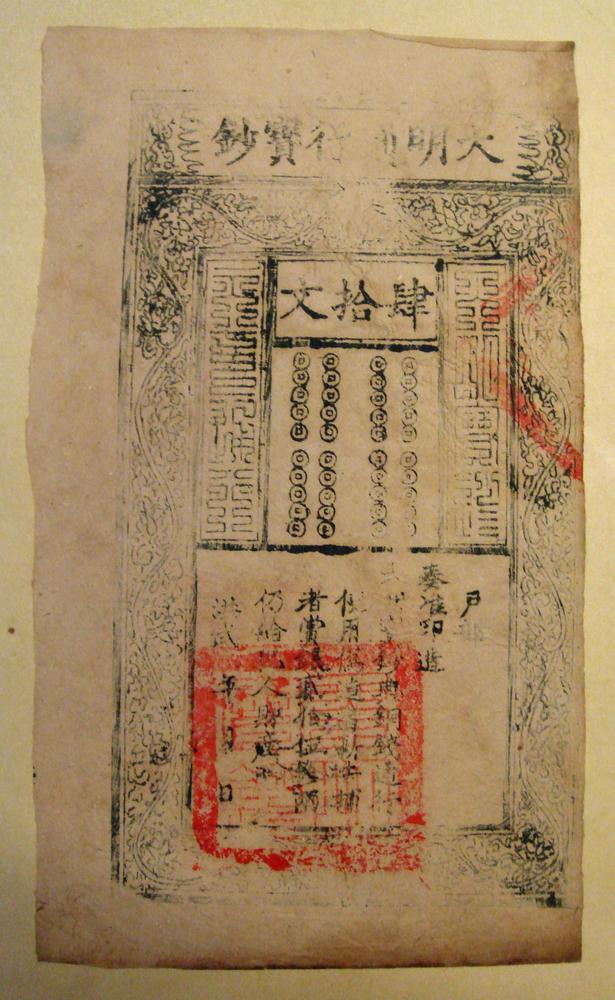 大明通行寶鈔
肆拾文
戶部
奏准印造
寶鈔與銅錢通行
使用偽造者斬告捕
者賞銀貳伯伍拾兩
仍給犯人財產
洪武 年 月 日